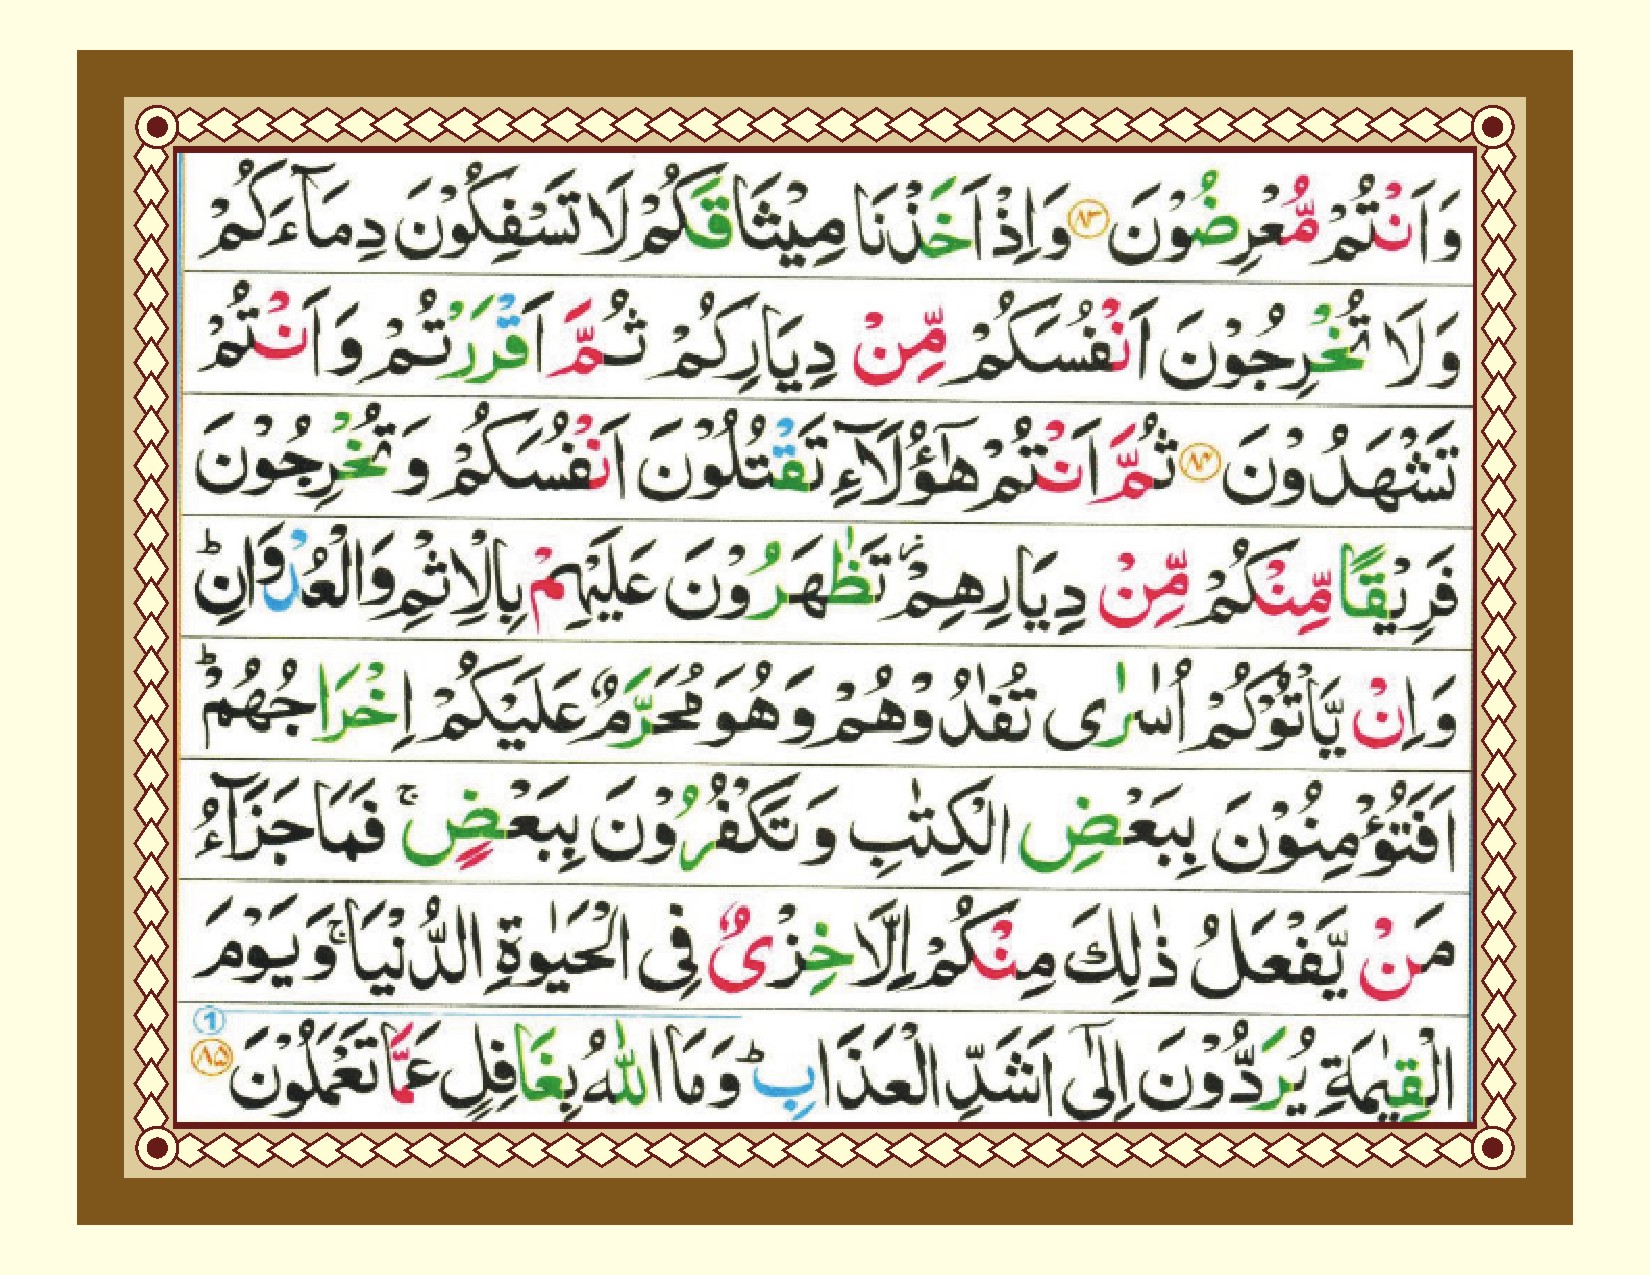 وَاَنْتُمْ مُّعْرِضُوْنَ ﴿۸۳﴾ وَاِذْ اَخَذْنَا مِيْثَاقَكُمْ لَا تَسْفِكُوْنَ دِمَآءَكُمْ
وَلَا تُخْرِجُوْنَ اَنْفُسَكُمْ مِّنْ دِيَارِكُمْ ثُمَّ اَقْرَرْتُمْ وَاَنْتُمْ
تَشْهَدُوْنَ ﴿۸۴﴾ ثُمَّ اَنْتُمْ هٰٓؤُلَآءِ تَقْتُلُوْنَ اَنْفُسَكُمْ وَتُخْرِجُوْنَ
فَرِيْقًا مِّنْكُمْ مِّنْ دِيَارِهِمْ ز تَظٰهَرُوْنَ عَلَيْهِمْ بِالْاِثْمِ وَالْعُدْوَانِ ؕ
وَاِنْ يَّاْتُوْكُمْ اُسٰرٰى تُفٰدُوْهُمْ وَهُوَ مُحَرَّمٌ عَلَيْكُمْ اِخْرَاجُهُمْ ؕ
اَفَتُؤْمِنُوْنَ بِبَعْضِ الْكِتٰبِ وَتَكْفُرُوْنَ بِبَعْضٍ ۚ فَمَا جَزَآءُ
مَنْ يَّفْعَلُ ذٰلِكَ مِنْكُمْ اِلَّا خِزْىٌ فِى الْحَيٰوةِ الدُّنْيَا ۚ وَيَوْمَ
الْقِيٰمَةِ يُرَدُّوْنَ اِلٰٓى اَشَدِّ الْعَذَابِ ؕ وَمَا اللّٰهُ بِغَافِلٍ عَمَّا تَعْمَلُوْنَ ﴿۸۵﴾ 1